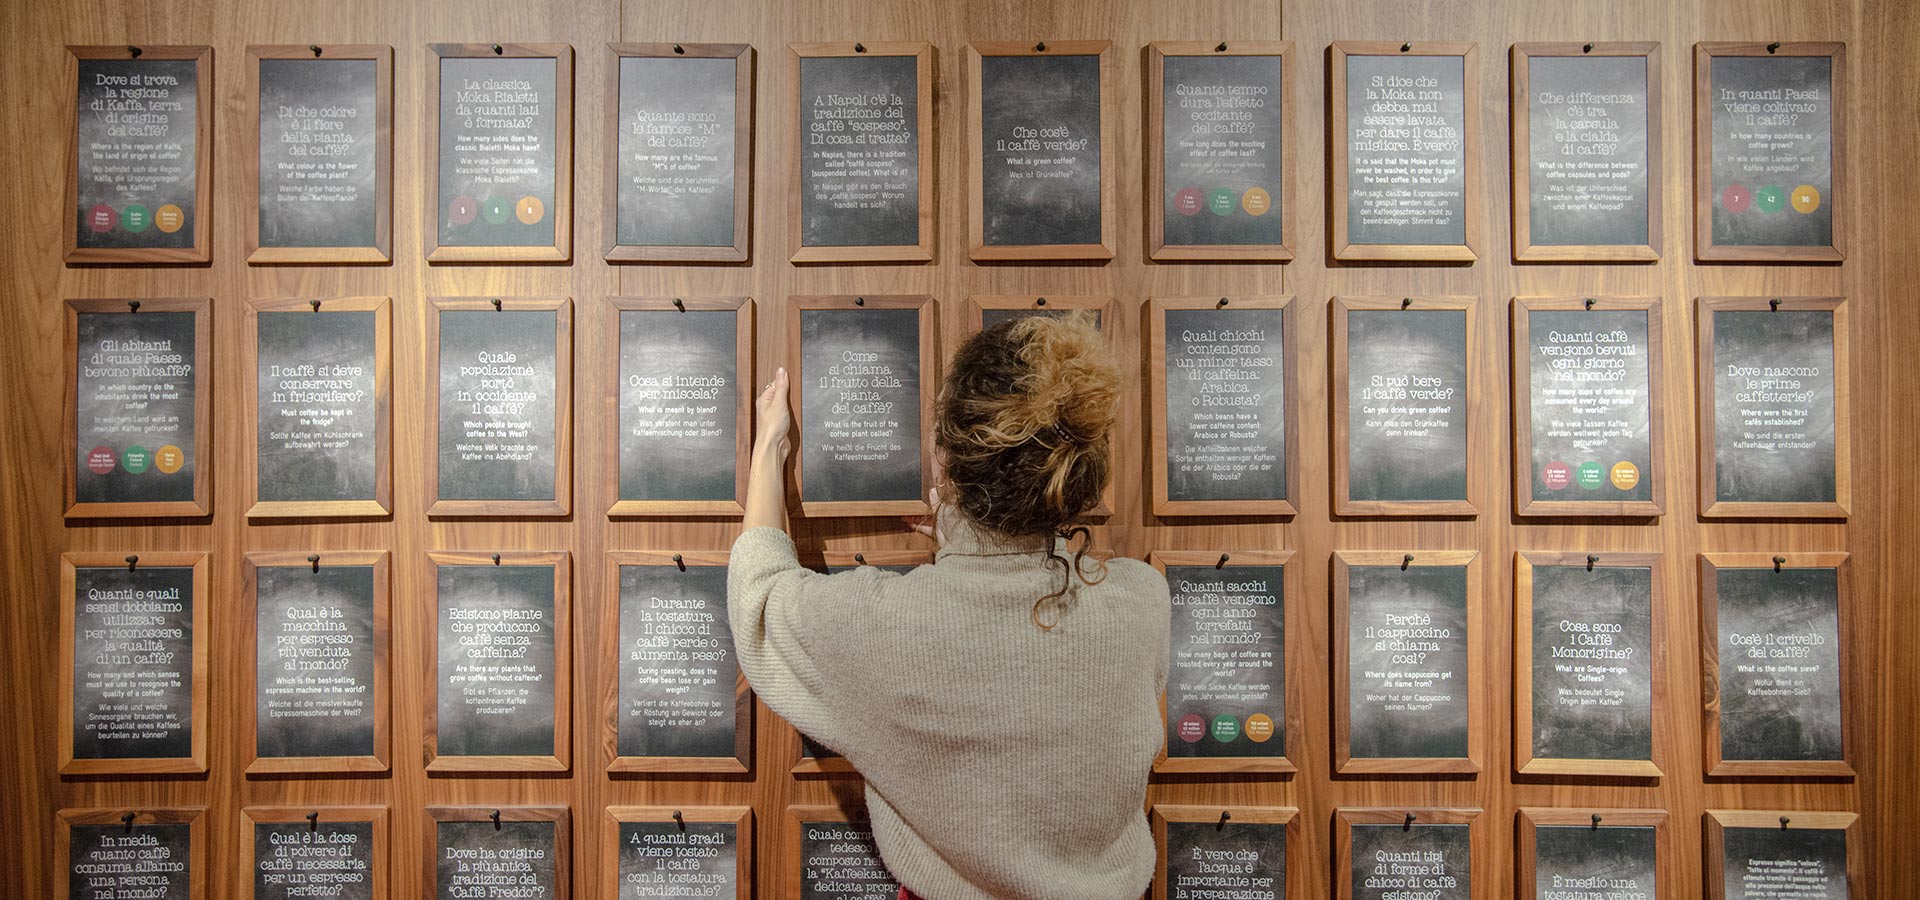 Dove si trova
la regione
di Kaffa, terra
di origine
del caffè?
Where is the region of Kaffa,
the land of origin of coffee?
Wo befindet sich die Region
Kaffa, die Ursprungsregion
des Kaffees?
Di che colore
è il fiore
della pianta
del caffè?
What colour is the flower
of the coffee plant?
Welche Farbe haben die
Blüten der Kaffeepflanze?
La classica
Moka Bialetti
da quanti lati
è formata?
How many sides does the
classic Bialetti Moka have?
Wie viele Seiten hat die
klassische Espressokanne
Moka Bialetti?
5
6
8
Quante sono
le famose "M"
del caffè?
How many are the famous
"M"s of coffee?
Welche sind die berühmten
"M-Wörter" des Kaffees?
A Napoli c'è la
tradizione del
caffè "sospeso".
Di cosa si tratta?
In Naples, there is a tradition
called "caffè sospeso"
(suspended coffee). What is it?
In Neapel gibt es den Brauch
des „caffè sospeso" Worum
handelt es sich?
Che cos'è
il caffè verde?
What is green coffee?
Was ist Grünkaffee?
Quanto tempo
dura l'effetto
eccitante
del caffè?
How long does the exciting
effect of coffee last?
Si dice che
la Moka non
debba mai
essere lavata
per dare il caffè
migliore. È vero?
It is said that the Moka pot must
never be washed, in order to give
the best coffee. Is this true?
Man sagt, dass die Espressokanne
nie gespült werden soll, um
den Kaffeegeschmack nicht zu
beeinträchtigen. Stimmt das?
Che differenza
c'è tra
la capsula
e la cialda
di caffè?
What is the difference between
coffee capsules and pods?
Was ist der Unterschied
zwischen einer Kaffeekapsel
und einem Kaffeepad?
In quanti Paesi
viene coltivato
il caffè?
In how many countries is
coffee grown?
In wie vielen Ländern wird
Kaffee angebaut?
7
42
90
Gli abitanti
di quale Paese
bevono più caffè?
In which country do the
inhabitants drink the most
coffee?
In welchem Land wird am
meisten Kaffee getrunken?
Il caffè si deve
conservare
in frigorifero?
Must coffee be kept in
the fridge?
Sollte Kaffee im Kühlschrank
aufbewahrt werden?
Quale
popolazione
portò
in occidente
il caffè?
Which people brought
coffee to the West?
Welches Volk brachte den
Kaffee ins Abendland?
Cosa si intende
per miscela?
What is meant by blend?
Was versteht man unter
Kaffeemischung oder Blend?
Come
si chiama
il frutto della
pianta
del caffè?
What is the fruit of the
coffee plant called?
Wie heißt die Frucht des
Kaffeestrauches?
Quali chicchi
contengono
un minor tasso
di caffeina:
Arabica
o Robusta?
Which beans have a
lower caffeine content
Arabica or Robusta?
Die Kaffeebohnen welcher
Sorte enthalten weniger Koffein
die der Arabica oder die der
Robusta?
Si può bere
il caffè verde?
Can you drink green coffee?
Kann man den Grünkaffee
denn trinken?
Quanti caffè
vengono bevuti
ogni giorno
nel mondo?
How many cups of coffee are
consumed every day around
the world?
Wie viele Tassen Kaffee
werden weltweit jeden Tag
getrunken?
Dove nascono
le prime
caffetterie?
Where were the first
cafés established?
Wo sind die ersten
Kaffeehäuser entstanden?
Quanti e quali
sensi dobbiamo
utilizzare
per riconoscere
la qualità
di un caffè?
How many and which senses
must we use to recognise the
quality of a coffee?
Wie viele und welche
Sinnesorgane brauchen wir,
um die Qualität eines Kaffees
beurteilen zu können?
Qual è la
macchina
per espresso
più venduta
al mondo?
Which is the best-selling
espresso machine in the world?
Welche ist die meistverkaufte
Espressomaschine der Welt?
Esistono piante
che producono
caffè senza
caffeina?
Are there any plants that
grow coffee without caffeine?
Gibt es Pflanzen, die
koffeinfreien Kaffee
produzieren?
Durante
la tostatura
il chicco di
caffè perde o
aumenta peso?
During roasting, does the
coffee bean lose or gain
weight?
Verliert die Kaffeebohne bei
der Röstung an Gewicht oder
steigt es eher an?
Quanti sacchi
di caffè vengono
ogni anno
torrefatti
nel mondo?
How many bags of coffee are
roasted every year around the
world?
Wie viele Säcke Kaffee werden
jedes Jahr weltweit geröstet?
Perchè
il cappuccino
si chiama
così?
Where does cappuccino get
its name from?
Woher hat der Cappuccino
seinen Namen?
Cosa sono
i Caffè
Monorigine?
What are Single-origin
Coffees?
Was bedeutet Single
Origin beim Kaffee?
Cos'è il crivello
del caffè?
What is the coffee sieve?
Wofür dient ein
Kaffeebohnen-Sieb?
In media
quanto caffè
consuma all'anno
una persona
nel mondo?
Qual è la dose
di polvere di
caffè necessaria
per un espresso
perfetto?
Dove ha origine
la più antica
tradizione del
"Caffè Freddo"?
A quanti gradi
viene tostato
il caffè
con la tostatura
tradizionale?
Quale com
tedesco
composto ne
la "Kaffeekant
dedicata propri
al caffè
È vero che
l'acqua è
importante per
la preparazione
Quanti tipi
di forme di
chicco di caffè
esistono?
È meglio una
tostatura veloce
Espresso significa "veloce",